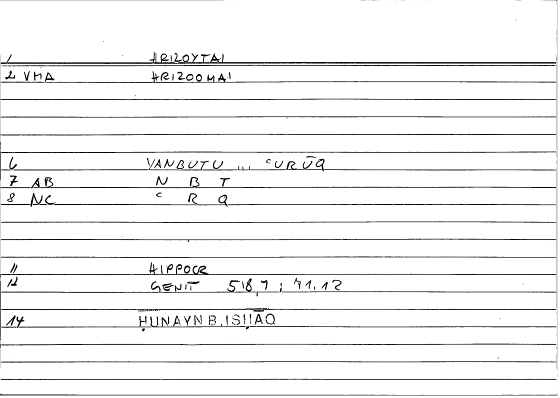 1 ҺRIZOYTAI
2 VMA ҺRIZOOMAI
6 YANBUTU ... ʿURŪQ
7 AB N B T
8 NC ʿ R Q
11 HIPPOCR
12 GENIT 518,7 ; 41.12
14 ḤUNAYN B. ISḤĀQ